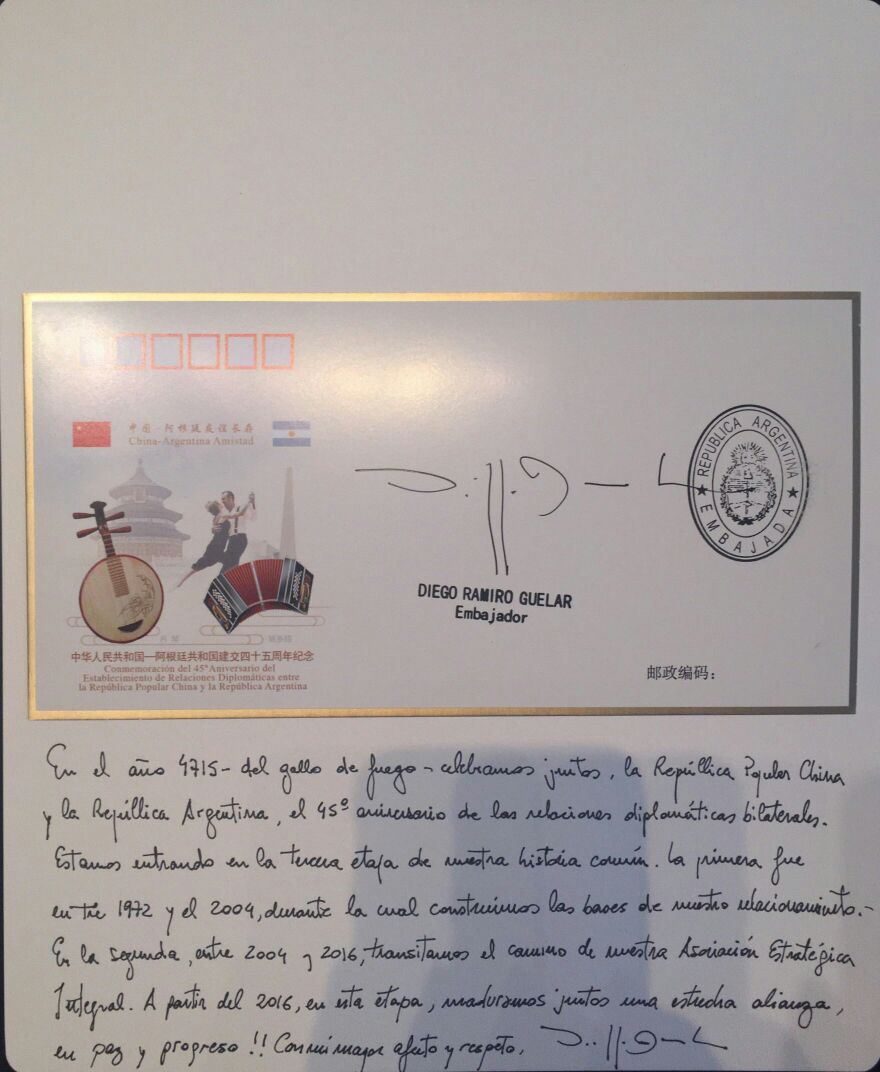 中国-阿根廷友谊长存
China-Argentina Amistad
REPUBLICA ARGENTINA
EMBAJADA
DIEGO RAMIRO GUELAR
Embajador
中华人民共和国—阿根廷共和国建交四十五周年纪念
Conmemoración del 45º Aniversario del
Establecimiento de Relaciones Diplomáticas entre
la República Popular China y la República Argentina
邮政编码:
En el año 4715- del gallo de fuego - celebramos juntos, la República Popular China
y la República Argentina, el 45º aniversario de las relaciones diplomáticas bilaterales.
Estamos entrando en la tercera etapa de nuestra historia común. La primera fue
entre 1972 y el 2004, durante la cual construimos las bases de nuestro relacionamiento.-
En la segunda, entre 2004 y 2016, transitamos el camino de nuestra Asociación Estratégica
Integral. A partir del 2016, en esta etapa, maduramos juntos una estrecha alianza,
en paz y progreso!! Con mi mayor afecto y respeto.